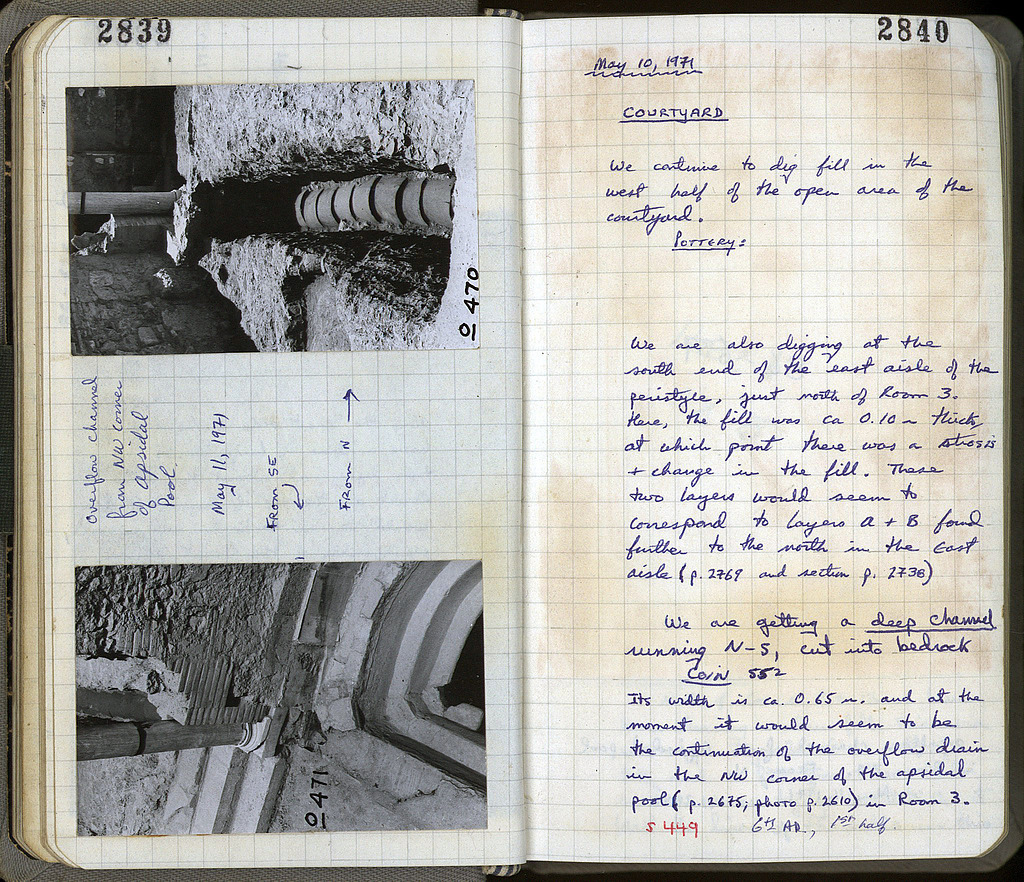 2839
O 470
overflow channel
from NW corner
of apsidal
Pool.
May 11, 1971
From SE
From N →
O 471
2840
May 10, 1971
COURTYARD
We continue to dig fill in the
west half of the open area of the
courtyard.
POTTERY:
We are also digging at the
south end of the east aisle of the
peristyle, just north of Room 3.
Here, the fill was ca 0.10 m thick,
at which point there was a strosis
+ change in the fill. These
two layers would seem to
correspond to layers A + B found
further to the north in the East
aisle (p. 2769 and section p. 2738)
We are getting a deep channel
running N-S, cut into bedrock
Coin 552
Its width is ca. 0.65 m. and at the
moment it would seem to be
the continuation of the overflow drain
in the NW corner of the apsidal
pool (p. 2675; photo p. 2610) in Room 3.
S 449 6th AD, 1st half.